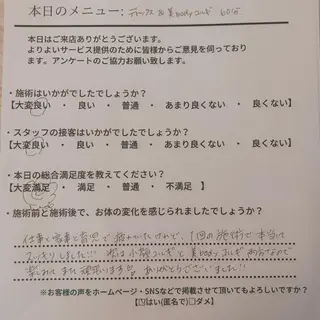 本日のメニュー: デトックス&美bodyコルギ 60分
本日はご来店ありがとうございます。
よりよいサービス提供のために皆様からご意見を伺っており
ます。アンケートのご協力お願い致します。
・施術はいかがでしたでしょうか?
【大変良い ・ 良い ・ 普通 ・ あまり良くない ・ 良くない】
・スタッフの接客はいかがでしたでしょうか?
【大変良い ・ 良い ・ 普通 ・ あまり良くない ・ 良くない】
・本日の総合満足度を教えてください?
【大変満足 ・ 満足 ・ 普通 ・ 不満足 】
・施術前と施術後で、お体の変化を感じられましたでしょうか?
仕事と家事と育児で疲れていたけれど、1回の施術で本当に
スッキリしました!!! 次は小顔コルギと美bodyコルギ
また頑張ります ありがとうございました!!
※お客様の声をホームページ・SNSなどで掲載させて頂いてもよろしいですか?
【☑はい(匿名で)❏ダメ】